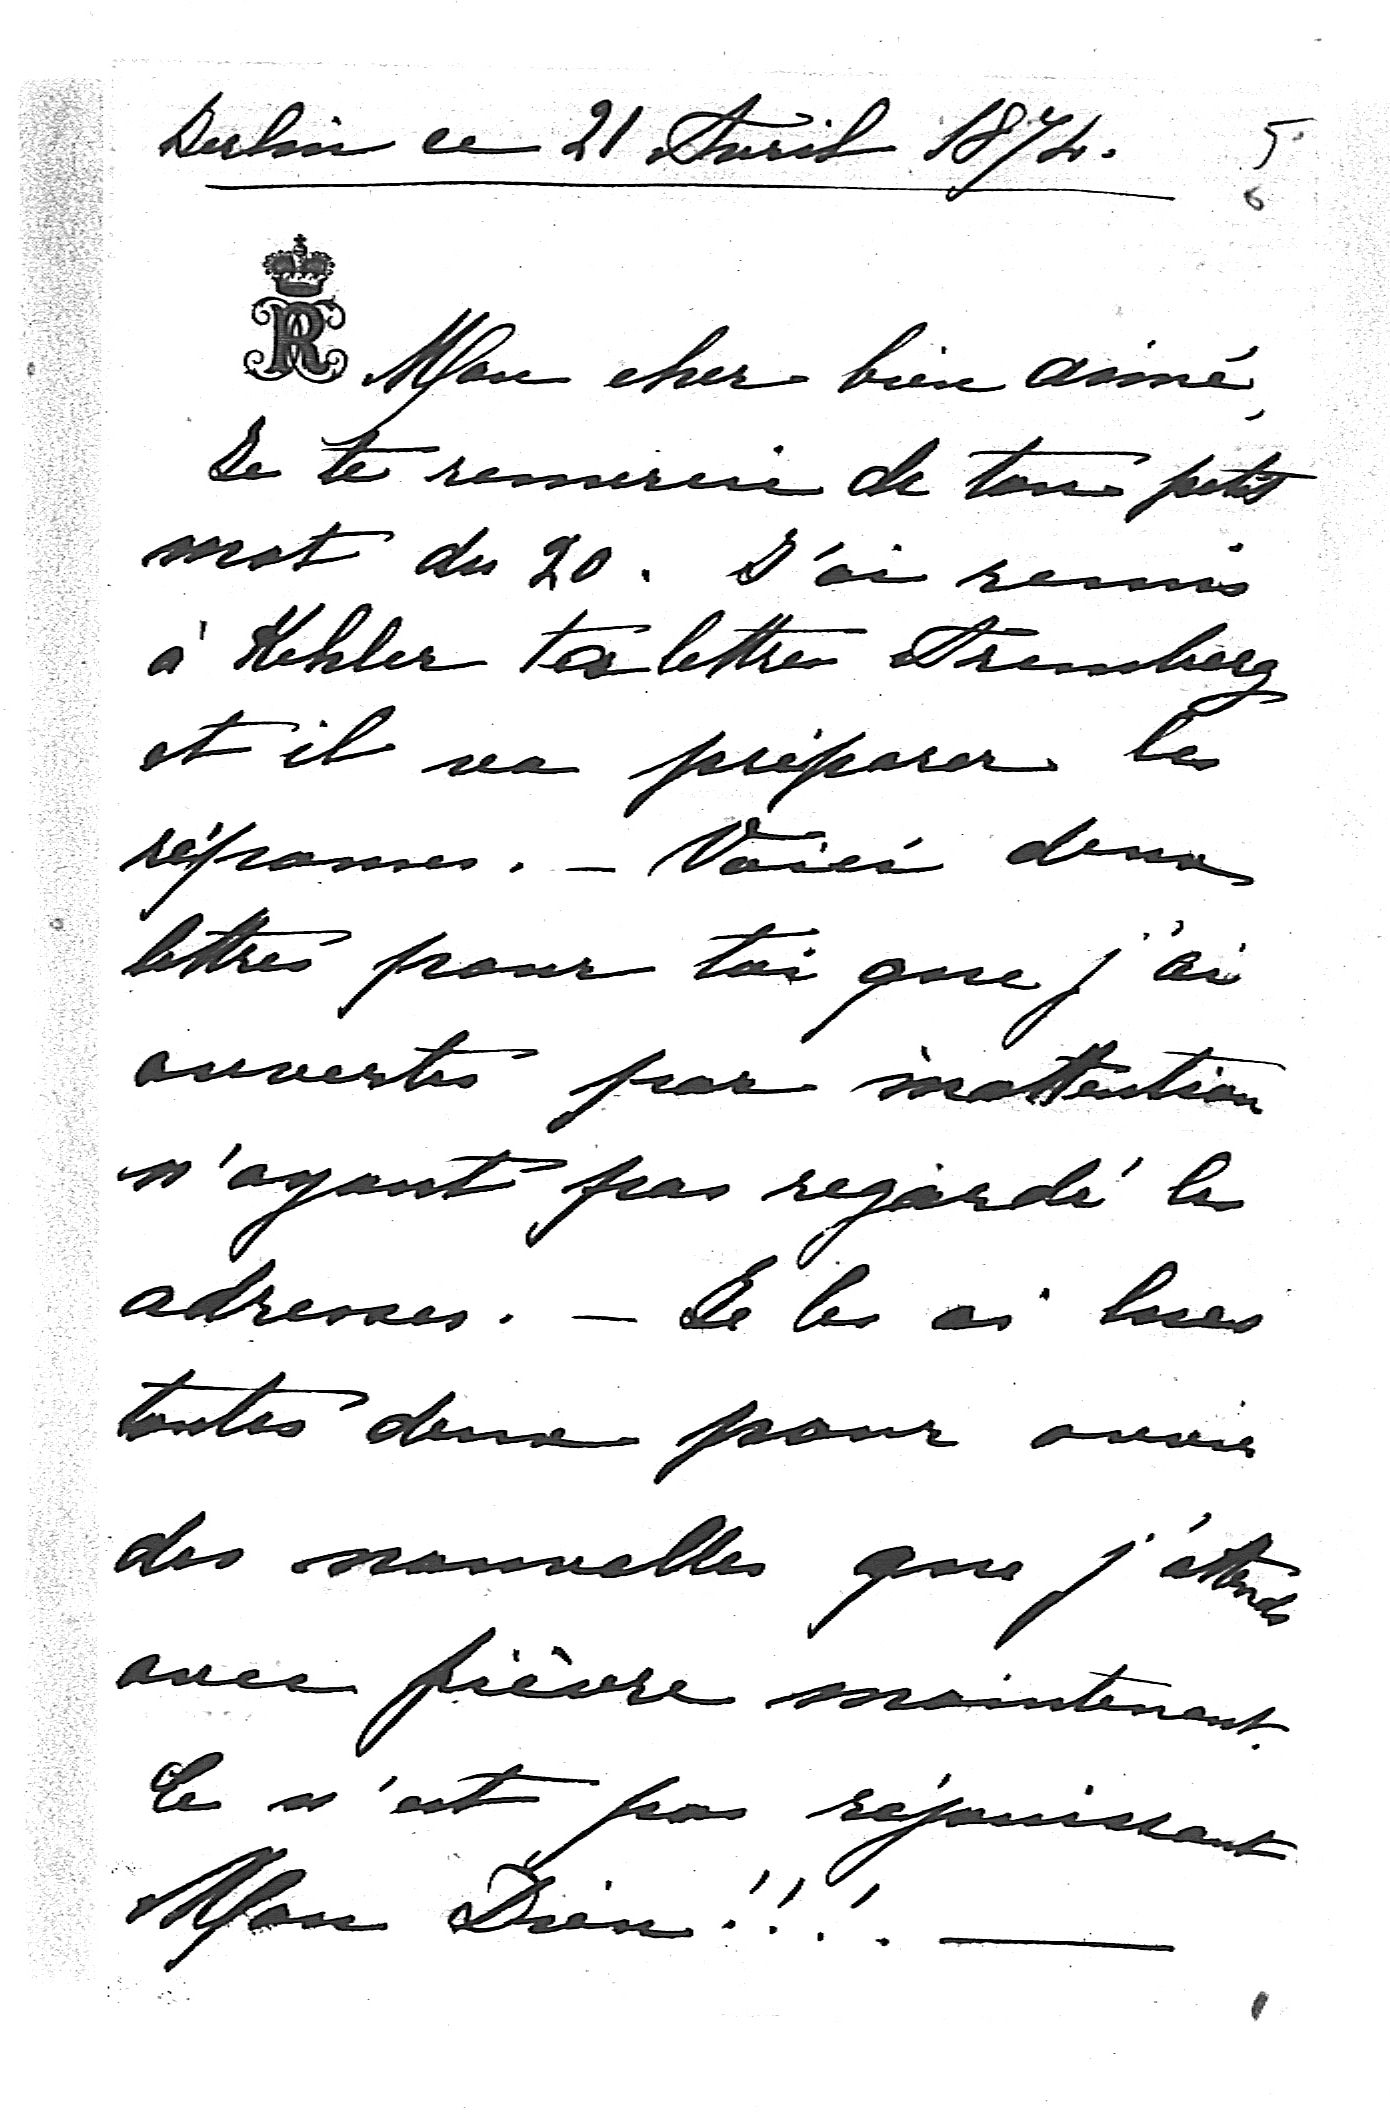 Berlin ce 21 Avril 1874.
5
6
R
Mon cher bien aimé,
Je te remercie de ton petit
mot du 20. J'ai remis
à Kehler ta lettre Aremberg
et il va préparer les
réponses. — Voici deux
lettres pour toi que j'ai
ouvertes par inattention
n'ayant pas regardé les
adresses. — Je les ai lues
toutes deux pour avoir
des nouvelles que j'attends
avec fièvre maintenant.
Ce n'est pas réjouissant
Mon Dieu!!! —